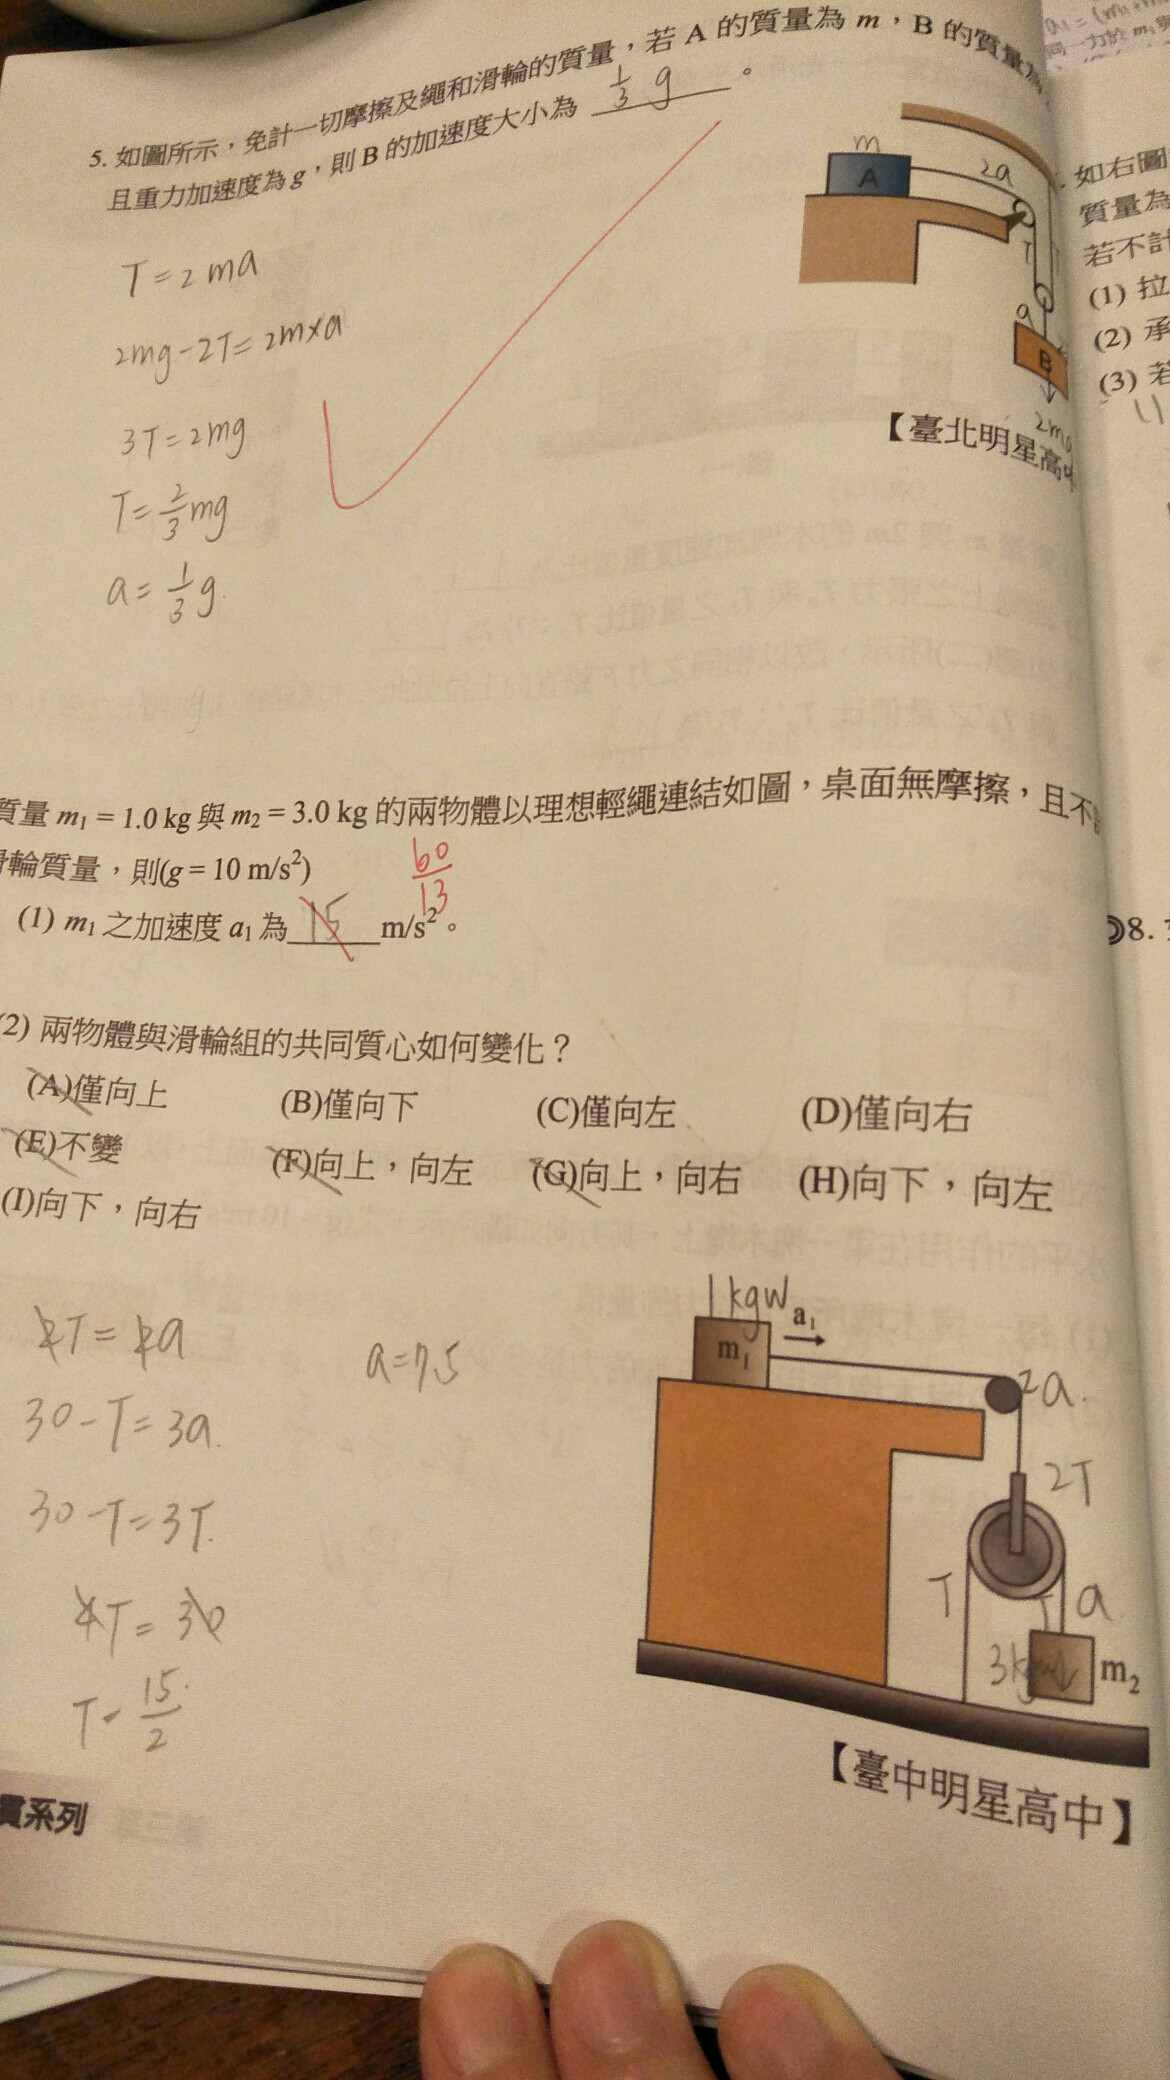 5. 如圖所示，免計一切摩擦及繩和滑輪的質量，若 A 的質量為 m，B 的質量為
且重力加速度為 g，則 B 的加速度大小為 1/3 g 。
m
A
2a
T
T
a
B
2mg
T = 2ma
2mg - 2T = 2m×a
3T = 2mg
T = 2/3 mg
a = 1/3 g.
【臺北明星高中
質量 m₁ = 1.0 kg 與 m₂ = 3.0 kg 的兩物體以理想輕繩連結如圖，桌面無摩擦，且不
滑輪質量，則(g = 10 m/s²)
60/13
(1) m₁ 之加速度 a₁ 為 15 m/s²。
(2) 兩物體與滑輪組的共同質心如何變化？
(A)僅向上 (B)僅向下 (C)僅向左 (D)僅向右
(E)不變 (F)向上，向左 (G)向上，向右 (H)向下，向左
(I)向下，向右
2T = 2a
a = 7.5
30 - T = 3a.
30 - T = 3T.
4T = 30
T = 15/2
1kgw
m₁
a₁
2a.
2T
T
T
a
m₂
【臺中明星高中】
貫系列
如右圖
質量為
若不計
(1) 拉
(2) 承
(3) 若
8.